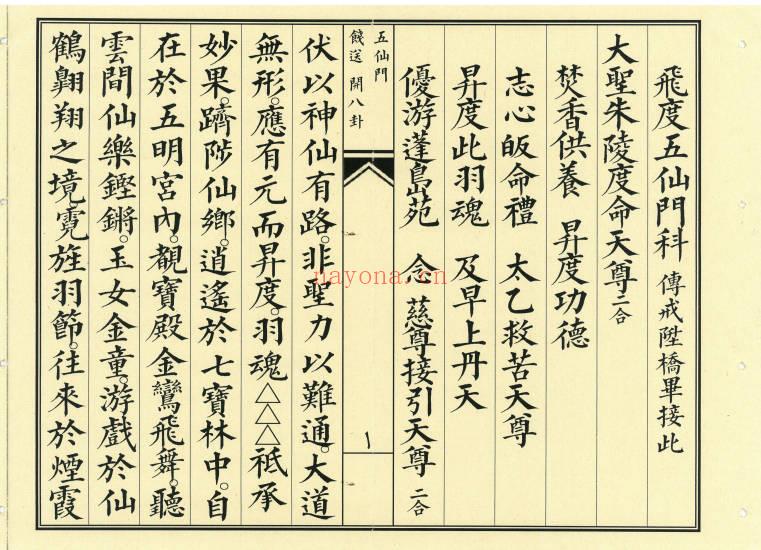 飛度五仙門科　傳戒陞橋畢接此
大聖朱陵度命天尊二合
焚香供養　昇度功德
志心皈命禮　太乙救苦天尊
昇度此羽魂　及早上丹天
優游蓬島苑　令　慈尊接引天尊　二合
五仙門
餞送　開八卦
一
伏以神仙有路。非聖力以難通。大道
無形。應有元而昇度。羽魂△△△祗承
妙果。躋陟仙鄉。逍遙於七寶林中。自
在於五明宮內。覩寶殿金鸞飛舞。聽
雲間仙樂鏗鏘。玉女金童。游戲於仙
鶴翺翔之境霓旌羽節。往來於煙霞
nayona.cn